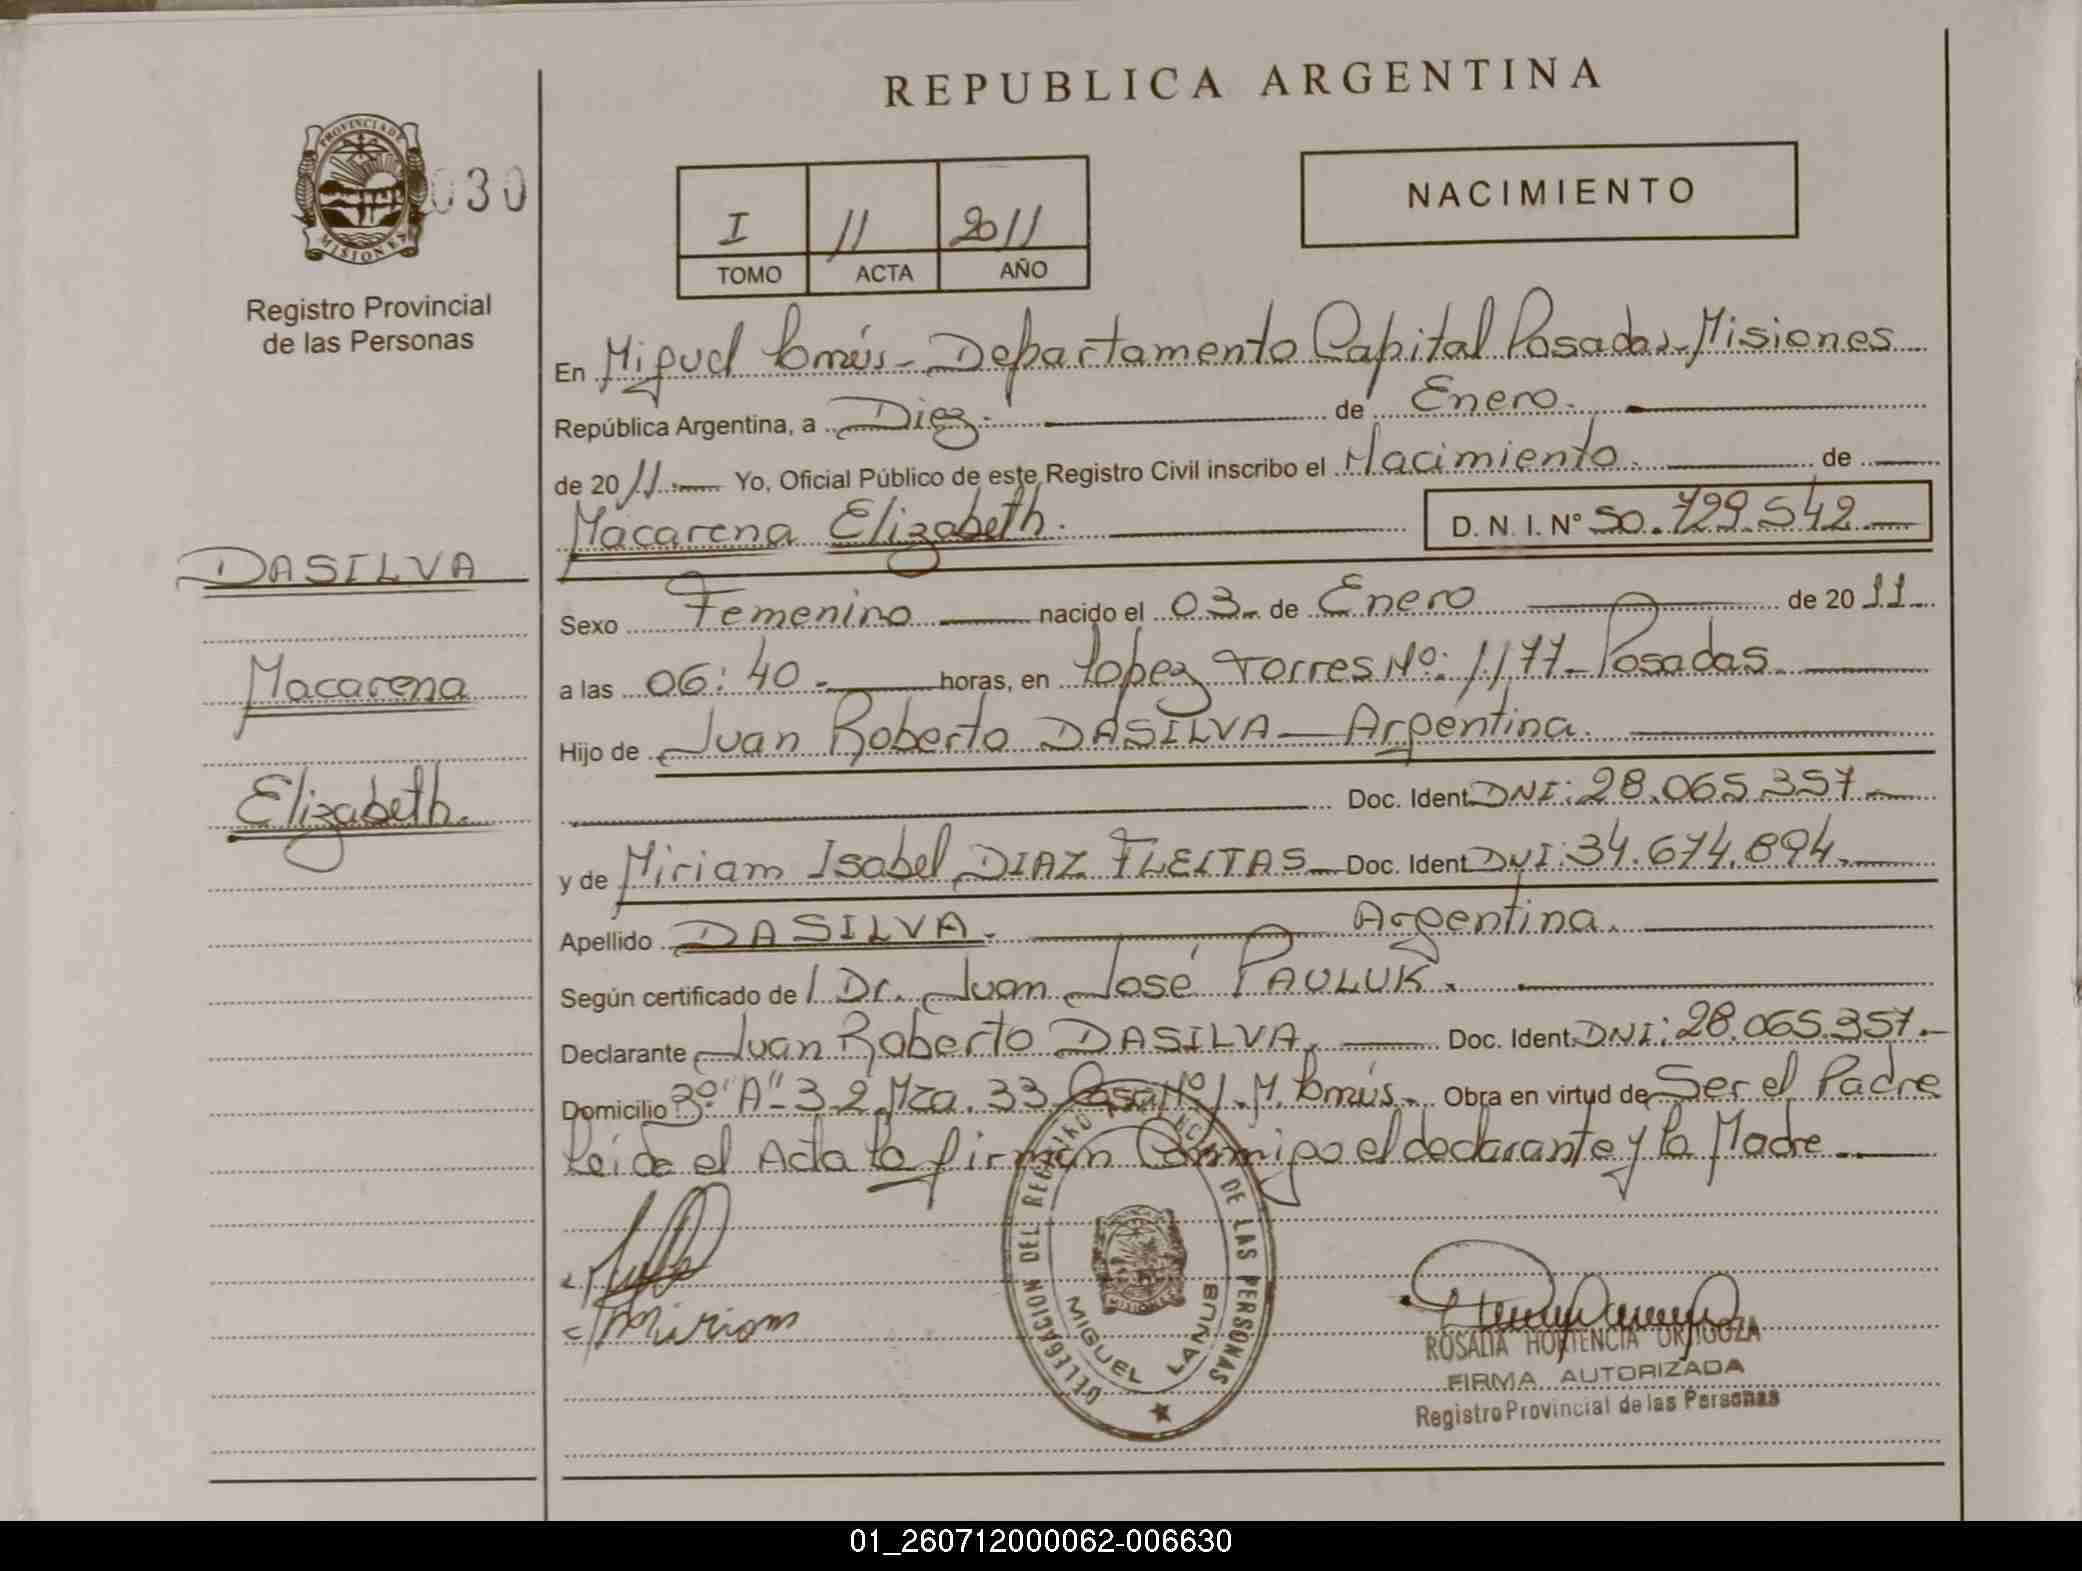 REPUBLICA ARGENTINA
PROVINCIA DE
MISIONES
030
Registro Provincial
de las Personas
I 11 2011
TOMO ACTA AÑO
NACIMIENTO
En Miguel Lanús - Departamento Capital Posadas - Misiones
República Argentina, a Diez. de Enero.
de 2011 Yo, Oficial Público de este Registro Civil inscribo el Nacimiento. de
Macarena Elizabeth. D. N. I. N° 50.729.542
DASILVA
Macarena
Elizabeth.
Sexo Femenino nacido el 03 de Enero de 2011
a las 06:40. horas, en López Torres Nº: 1177 - Posadas.
Hijo de Juan Roberto DASILVA - Argentina.
Doc. Ident. DNI: 28.065.357
y de Miriam Isabel DIAZ FLEITAS Doc. Ident. DNI: 34.674.894.
Apellido DASILVA. Argentina.
Según certificado de Dr. Juan José PAULUK.
Declarante Juan Roberto DASILVA. Doc. Ident. DNI: 28.065.357.
Domicilio 3º "A" - 32 Mza. 33 Casa Nº 1. M. Lanús. Obra en virtud de Ser el Padre
Leída el Acta la firman Conmigo el declarante y la Madre
Miriam
DELEGACION DEL REGISTRO DE LAS PERSONAS
MIGUEL LANUS
ROSALIA HORTENCIA
FIRMA AUTORIZADA
Registro Provincial de las Personas
01_260712000062-006630